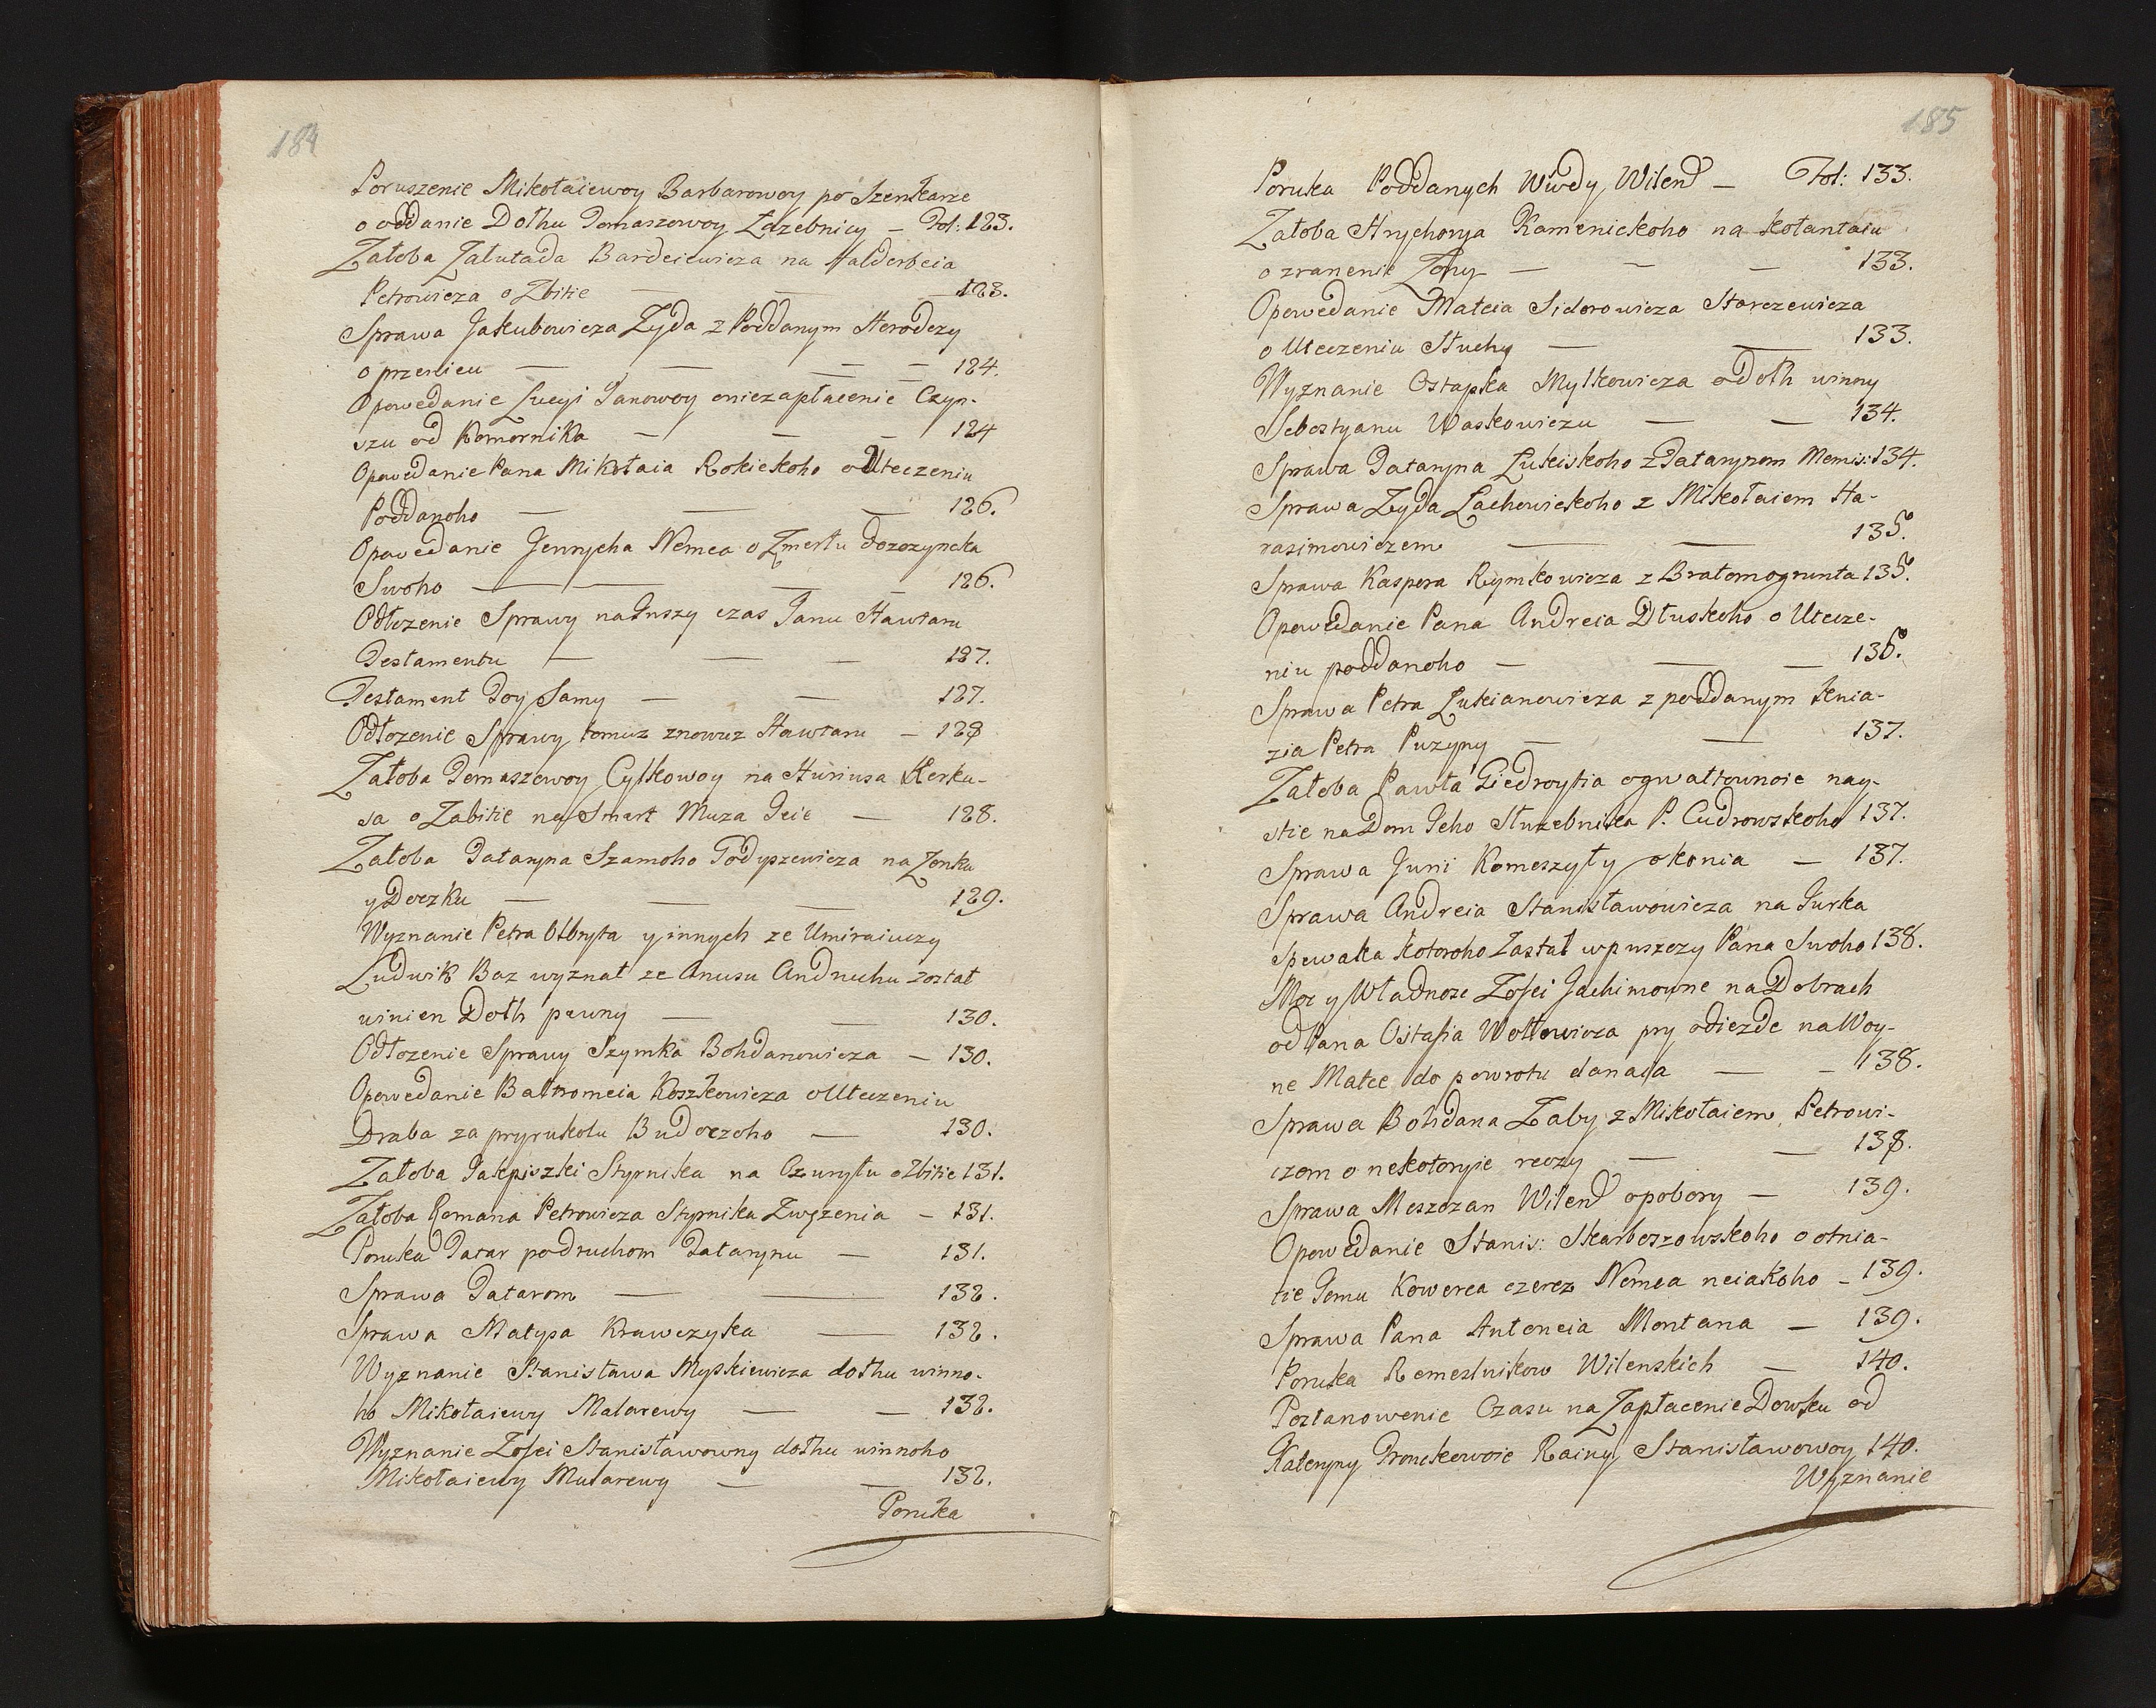 184
Poruszenie Mikołaiewoy Barbarowoy po Szenkarze
o oddanie Dołhu Tomaszowoy Łazebnicy – Fol: 123.
Załoba Załutada Bardeiewicza na Halderbeia
Petrowicza o Zbitie — — — 123.
Sprawa Jakubowicza Zyda z Poddanym Horodczy
o przerlieu — — — — 124.
Opowedanie Łucyi Janowoy oniezapłacenie Czyn-
szu od Komornika — — — 124
Opowedanie Pana Mikołaia Rokickoho o Uteczeniu
Poddanoho — — — 126.
Opowedanie Jenrycha Nemca o Zmertu dorozyncka
Swoho — — — — 126.
Odłozenie Sprawy na Inszy czas Janu Hawranu
Testamentu — — — 127.
Testament Toy Samy — — 127.
Odłozenie Sprawy tomuz znowuz Hawranu – 128
Załoba Tomaszewoy Cytkowoy na Huriusa Kerku-
sa o Zabitie na Smert Muza Jeie — 128.
Załoba Tataryna Szamoho Todyszewicza na Zonku
y Doczku — — — 129.
Wyznanie Petra Olbryta y innych ze Umiraiuczy
Ludwik Baz wyznał ze Anusu Andruchu został
winien Dołh pewny — — 130.
Odłozenie Sprawy Szymka Bohdanowicza – 130.
Opowedanie Bałtromeia Koszkowicza o Uteczeniu
Draba za pryrukolu Budoczoho — 130.
Załoba Jakpiszki Styrnika na Czurytu o Zbitie 131.
Załoba Romana Petrowicza Styrnika Zwęzenia – 131.
Poruka Tatar podruchom Tatarynu — 131.
Sprawa Tatarom — — 132.
Sprawa Matysa Krawczyka — 132.
Wyznanie Stanisława Myskiewicza dołhu winno-
ho Mikołaiewy Malarewy — — 132.
Wyznanie Zofei Stanisławowny dołhu winnoho
Mikołaiewy Mularewy — — 132.
Poruka
185
Poruka Poddanych Wwdy Wilend – Fol: 133.
Załoba Hrychorya Kamenickoho na Kołantaiu
o zranenie Zony — — — 133.
Opowedanie Mateia Sidorowicza Starczewicza
o Uteczeniu Słughy — — 133.
Wyznanie Ostapka Mytkowicza o dołh winny
Sebestyanu Waskowiczu — — 134.
Sprawa Tataryna Łukiskoho z Tatarynom Memis: 134.
Sprawa Zyda Lachowickoho z Mikołaiem Ha-
rasimowiczem — — 135.
Sprawa Kaspera Rymkowicza z Bratomogrunta 135.
Opowedanie Pana Andreia Dłuskoho o Utecze-
niu poddanoho — — — 136.
Sprawa Petra Łukianowicza z poddanym Knia-
zia Petra Puzyny — — 137.
Załoba Pawła Giedroytia ogwałtownoie nay-
stie na Dom Jeho Słuzebnika P. Cudrowskoho 137.
Sprawa Jurii Komeszyty o konia — 137.
Sprawa Andreia Stanisławowicza na Jurka
spewaka kotoroho Zastał w puszczy Pana Swoho 138.
Moc y Władnosc Zofei Jachimowne na Dobrach
od Pana Ostafia Wołłowicza pry odiezde na Woy-
ne Matce do powrotu danaia — – 138.
Sprawa Bohdana Zaby z Mikołaiem Petrowi-
czom o nekotoryie reczy — — 138.
Sprawa Meszczan Wilend o pobory — 139.
Opowedanie Stanis: Skarboszowskoho o otnia-
tie Jemu Kowerca czerez Nemca neiakoho – 139.
Sprawa Pana Antoneia Montana – 139.
Poruka Remesłnikow Wilenskich — 140.
Postanowenie Czasu na Zapłacenie Dowhu od
Kateryny Pronckowoie Rainy Stanisławowoy 140.
Wyznanie